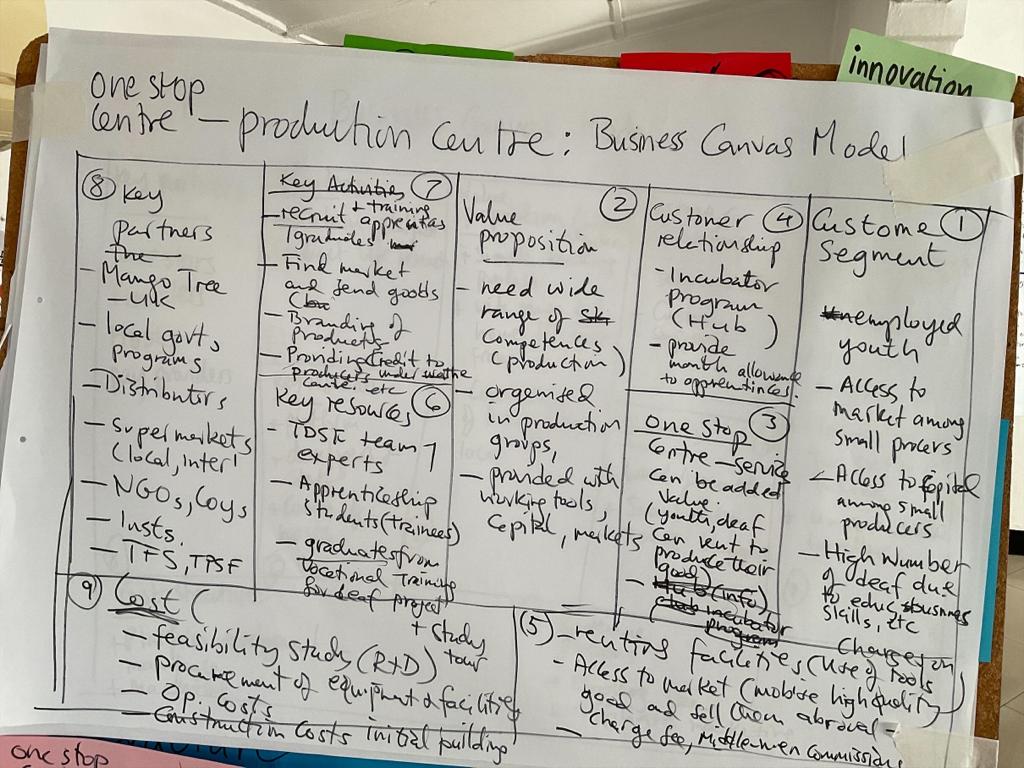 innovation
one stop
centre – production centre: Business Canvas Model
⑧ Key
partners
The
– Mango Tree
– UK
– local govt,
programs
– Distributors
– Supermarkets
(local, inter'l
– NGOs, Coys
– Insts.
– TFS, TPSF
Key Activities ⑦
+ training
– recruit apprentices
/graduates
– Find market
and send goods
– Branding of
products
– Providing credit to
producers under
centre etc
Key resources ⑥
– TDSF team 7
experts
– Apprenticeship
students (trainees)
– graduates from
Vocational Training
for deaf project
②
Value
proposition
– need wide
range of
competences
(production)
– organised
in production
groups,
– provided with
working tools,
capital, markets
Customer ④
relationship
– Incubator
program
(Hub)
– provide
month allowance
to apprentinces.
③
one stop
centre – service
can be added
value.
(youth, deaf
can rent to
produce their
good)
– Hub (info)
(hub incubator
program
①
Custome
Segment
unemployed
youth
– Access to
market among
small procers
– Access to capital
among small
producers
– High Number
of deaf due
to educ, business
skills, etc
⑨ Cost (
– feasibility study (R+D) + study
tour
– procurement of equipment & facilities
– Op. costs
– Construction Costs initial building
⑤ – renting facilities (use of tools
Charges on
– Access to market (mobise high quality)
good and sell them abroval –
– charge fee, Middle-men commissions
one stop